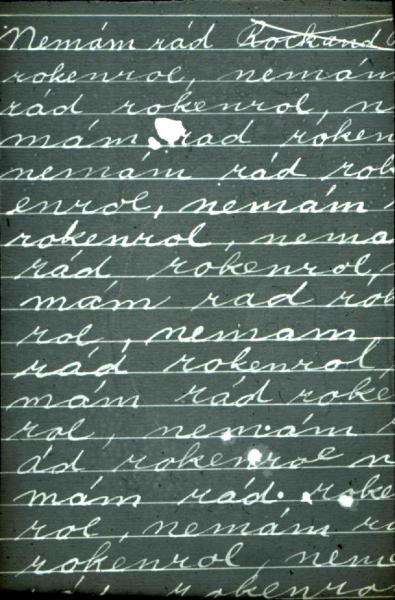 Nemám rád Rockand
rokenrol, nemám
rád rokenrol, n
mám rad roken
nemám rád rok
enrol, nemám
rokenrol, nema
rád rokenrol,
mám rad rok
rol, nemam
rád rokenrol,
mám rád roke
rol, nemám r
ád rokenrol n
mám rád. roke
rol, nemám ra
rokenrol, neme
rokenro